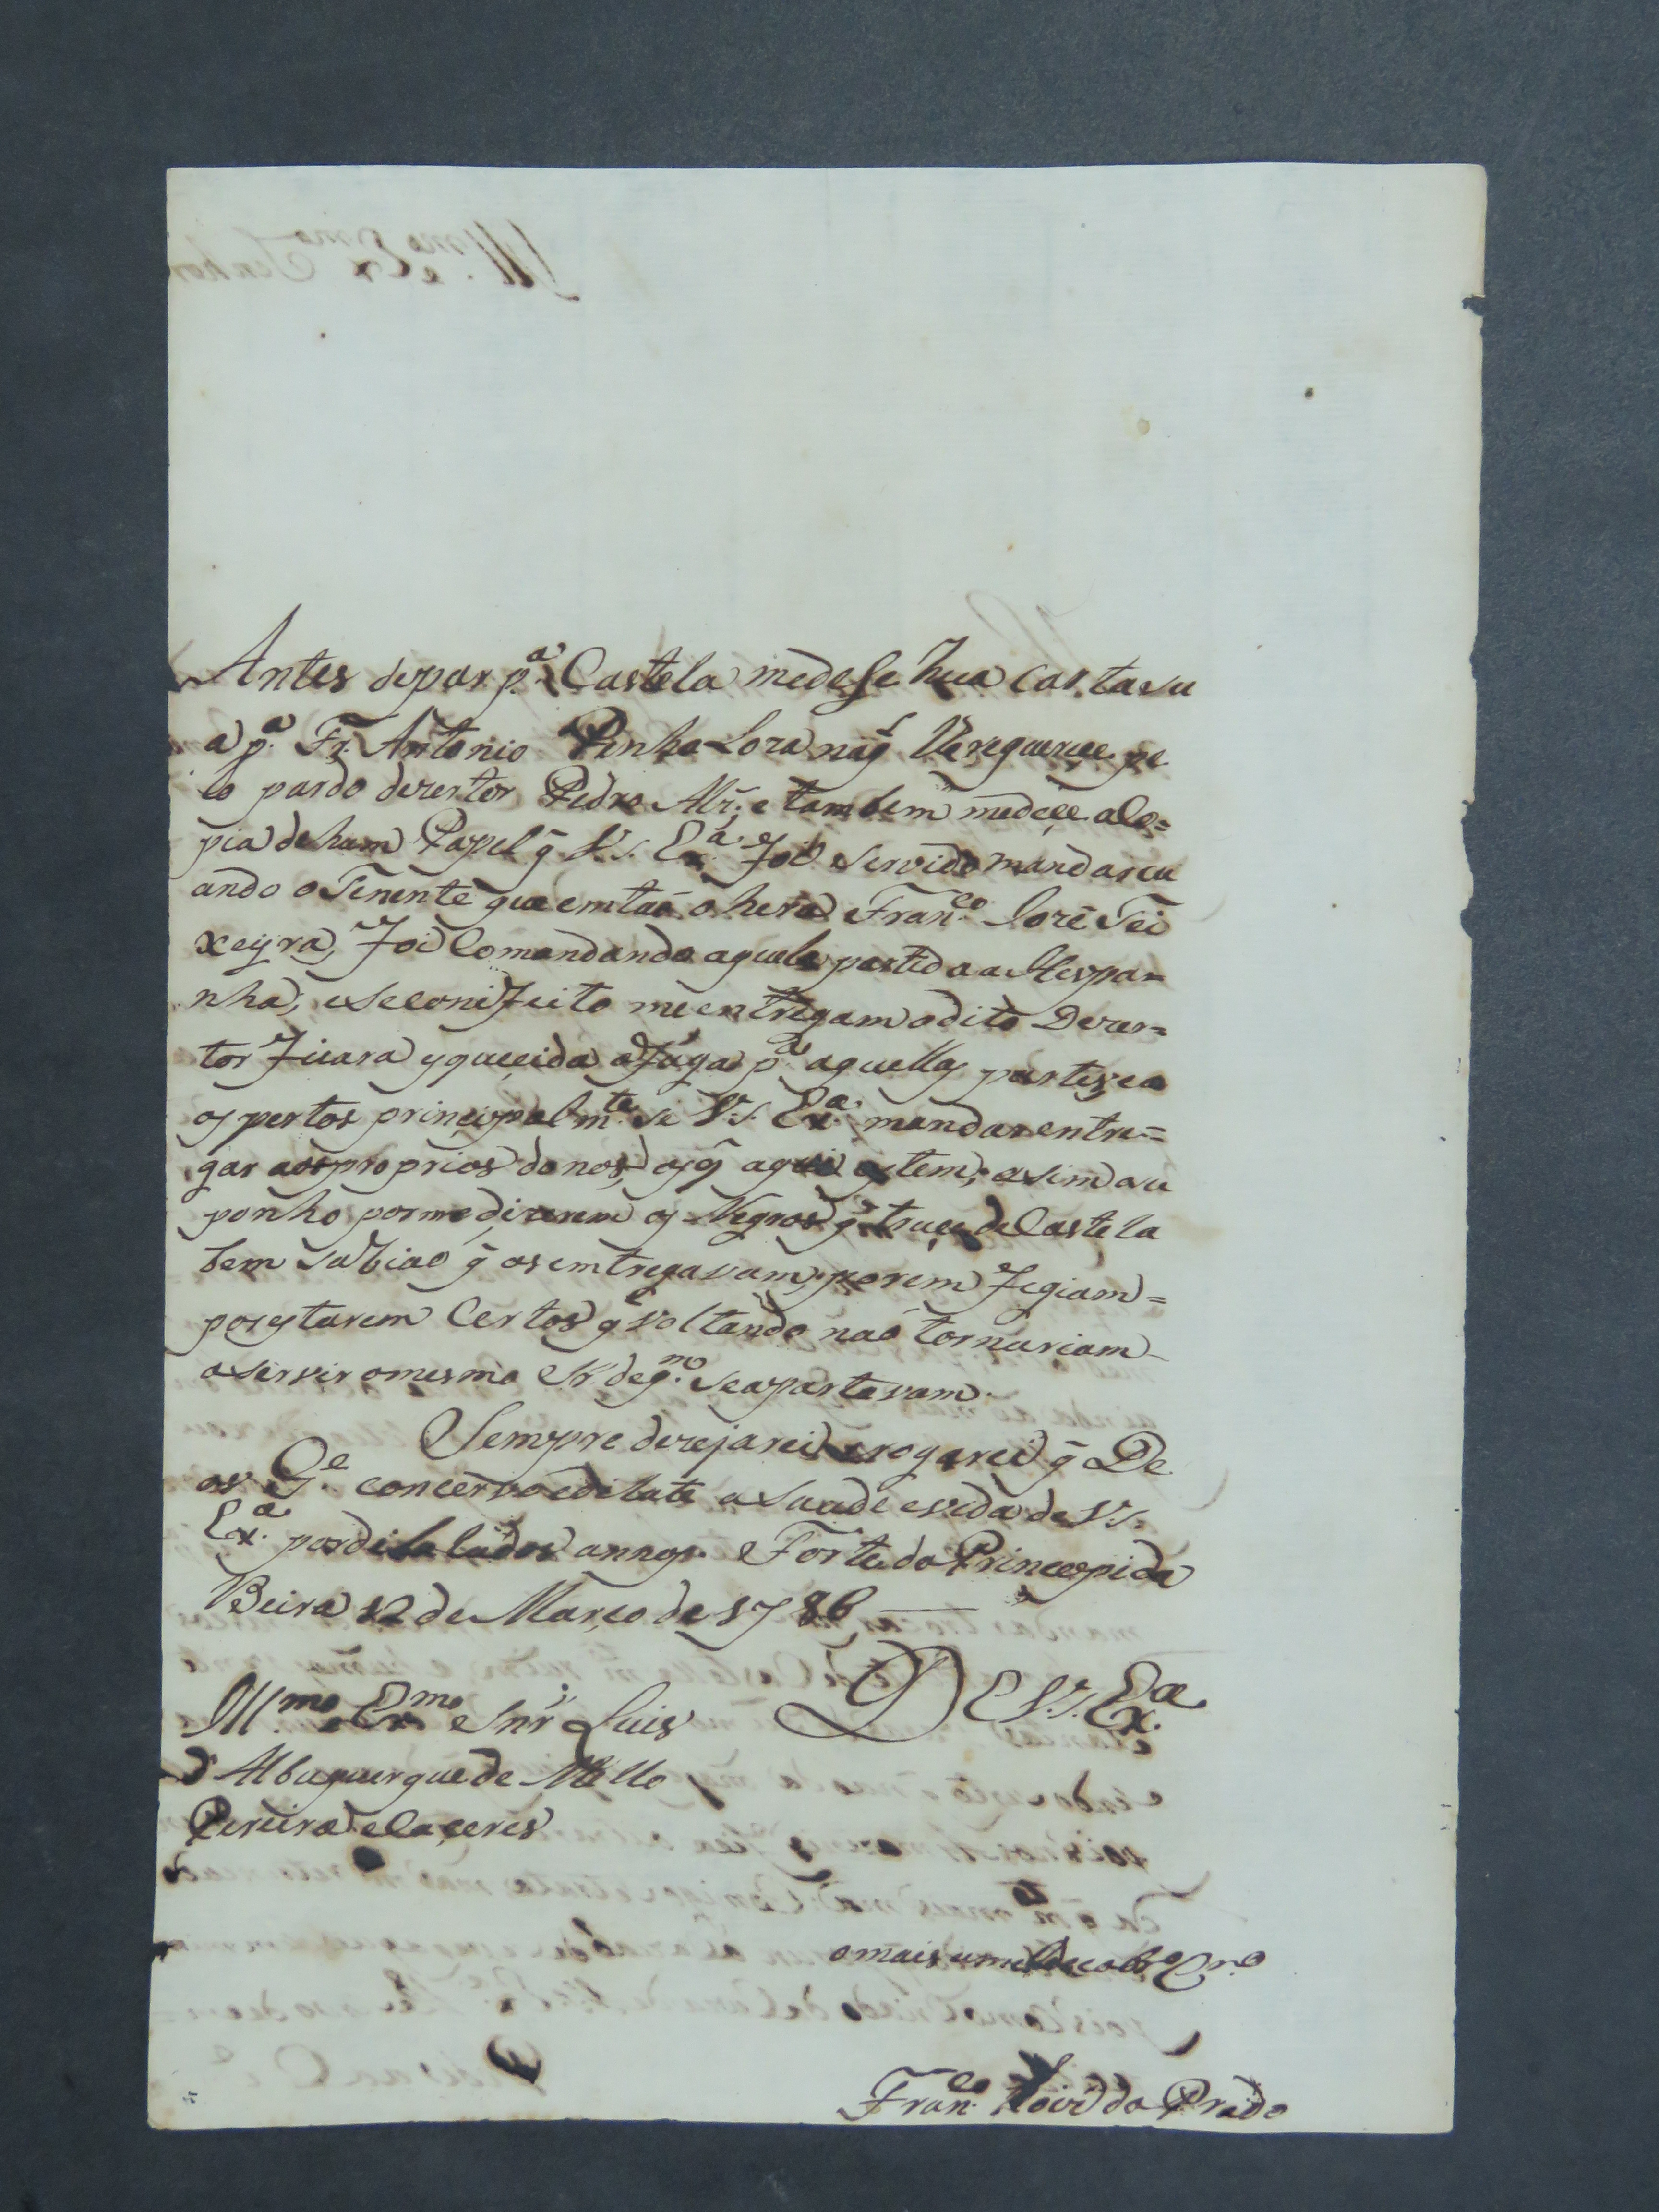 Antes depar p.ª Castela mede Se hua carta su
a p.ª Fr. Antonio Penha Lora naĩ Veregueru pe
lo pardo dezertor Pedro Alz̃. e tambem medeçe a Co=
pia de hum Papel q̃ V.s. Ex.ª foi servido mandar cu
ando o Tenente que emtaõ o hera Fran.co Jozé Tei
xeyra, Foi Comandando aquela partida a Hespa=
nha, e Se Comifeito me entregam o dito Dezer=
tor Ficara esqueçida a Fuga p.ª aquellas partes, ea
os pertos principalm.te Se V.s. Ex.ª mandar entre=
gar aos proprios donos, os q̃ aqui estem, asim o su
ponho por me dizerem os Negros q̃ truçe de Castela
bem Sabiaõ q̃ os emtregavam, porem Fegiam=
por estarem Certos q̃ voltando naõ tornariam
a Servir o mesmo Sr̃ de q.m Se apartavam.
Sempre dezejarei e rogarei q̃ De
os G.e concerve e dilate a Saude e vida de V.s.
Ex.ª por dilalados annos. Forte do Princepi da
Beira 12 de Marco de 1786
De V.s. Ex.ª
Ill.mo e Ex.mo Snr̃ Luis
d'Albuquerque de Mello
Pereira e Caçeres
o mais umelde
Fran.co do Prado